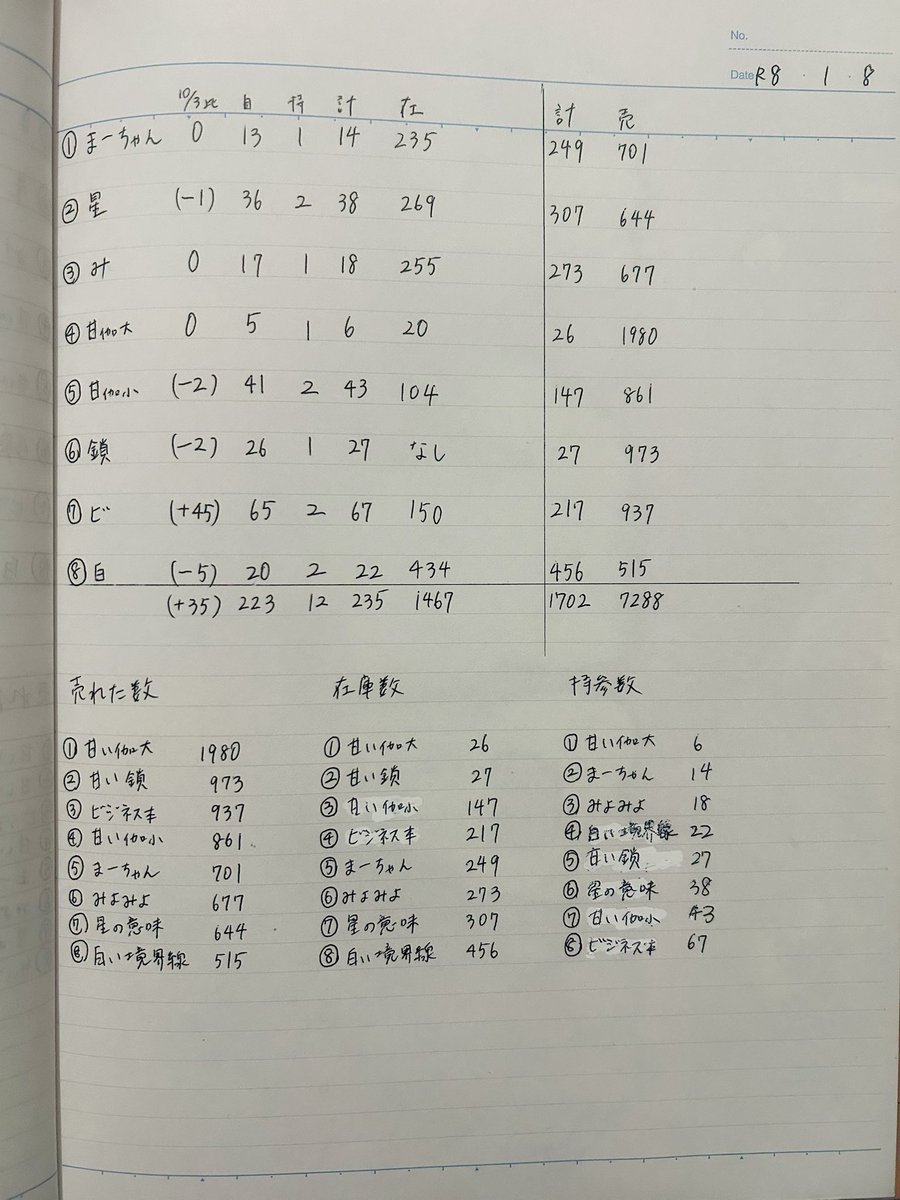 No.
Date R8 · 1 · 8
10/3比 自 持 計 在 計 売
① まーちゃん 0 13 1 14 235 249 701
② 星 (-1) 36 2 38 269 307 644
③ み 0 17 1 18 255 273 677
④ 甘伽大 0 5 1 6 20 26 1980
⑤ 甘伽小 (-2) 41 2 43 104 147 861
⑥ 鎖 (-2) 26 1 27 なし 27 973
⑦ ビ (+45) 65 2 67 150 217 937
⑧ 白 (-5) 20 2 22 434 456 515
(+35) 223 12 235 1467 1702 7288
売れた数 在庫数 持参数
① 甘い伽大 1980 ① 甘い伽大 26 ① 甘い伽大 6
② 甘い鎖 973 ② 甘い鎖 27 ② まーちゃん 14
③ ビジネス本 937 ③ 甘い伽小 147 ③ みよみよ 18
④ 甘い伽小 861 ④ ビジネス本 217 ④ 白い境界線 22
⑤ まーちゃん 701 ⑤ まーちゃん 249 ⑤ 甘い鎖 27
⑥ みよみよ 677 ⑥ みよみよ 273 ⑥ 星の意味 38
⑦ 星の意味 644 ⑦ 星の意味 307 ⑦ 甘い伽小 43
⑧ 白い境界線 515 ⑧ 白い境界線 456 ⑧ ビジネス本 67